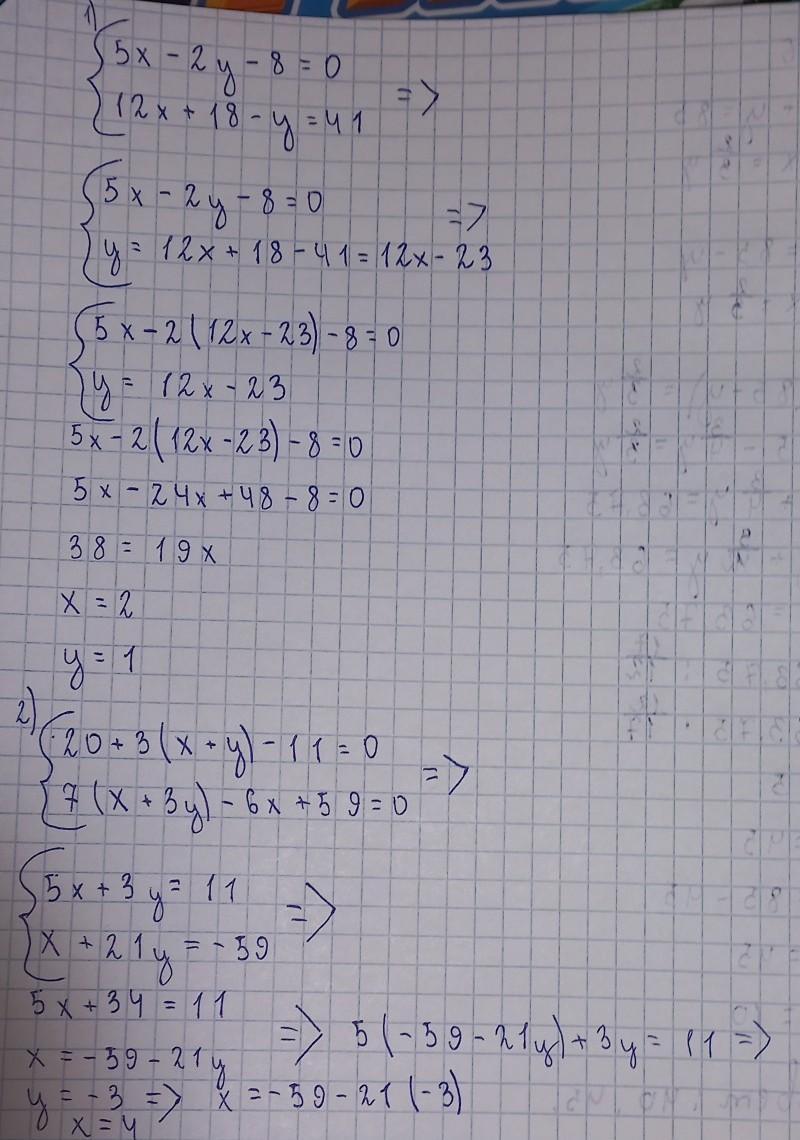 1)
5x - 2y - 8 = 0
12x + 18 - y = 41 =>
5x - 2y - 8 = 0 =>
y = 12x + 18 - 41 = 12x - 23
5x - 2(12x - 23) - 8 = 0
y = 12x - 23
5x - 2(12x - 23) - 8 = 0
5x - 24x + 48 - 8 = 0
38 = 19x
x = 2
y = 1
2)
20 + 3(x + y) - 11 = 0 =>
7(x + 3y) - 6x + 59 = 0
5x + 3y = 11 =>
x + 21y = -59
5x + 34 = 11
x = -59 - 21y => 5(-59 - 21y) + 3y = 11 =>
y = -3 => x = -59 - 21(-3)
x = 4